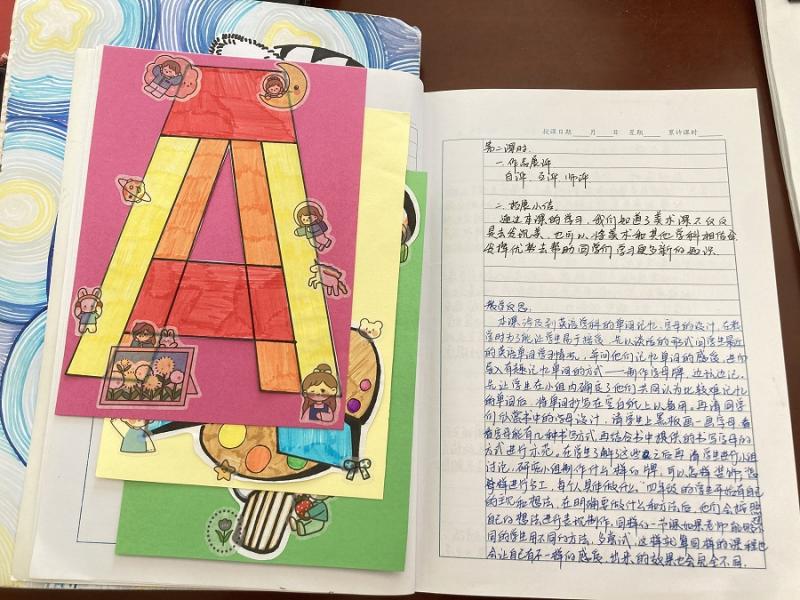 授课日期 月 日 星期 累计课时
第二课时
一.作品展评
自评、互评、师评
二.拓展小结
通过本课的学习,我们知道了美术课不仅仅
是去发现美,也可以将美术和其他学科相结合,
发挥优势去帮助同学们学习更多新的知识.
教学反思:
本课涉及到英语学科的单词记忆,字母的设计,在教
学时为了能让学生易于接受,先以谈话的形式问学生最近
的英语单词学习情况,并问他们记忆单词的感受,进而
导入有趣记忆单词的方式——制作字母牌,边玩边记。
先让学生在小组内确定了他们共同认为比较难记忆
的单词后,将单词抄写在空白纸上以备用。再请同学
们欣赏书中的字母设计,请学生上黑板画一画字母,看
看字母能有几种书写方式,再结合书中提供的书写字母的
方式进行示范。在学生了解了这些之后再请学生进行小组
讨论,研究小组制作什么样的牌,可以怎样装饰,怎
样进行分工,每个人具体做什么。四年级的学生开始有自己
的主见和想法,在明确要做什么和方法后,他们会按照
自己的想法进行尝试制作。同样的一节课如果老师能用不
同的学生用不同的方法,多尝试,这样就算同样的课程也
会让自己有不一样的感受,出来的效果也会完全不同.
A